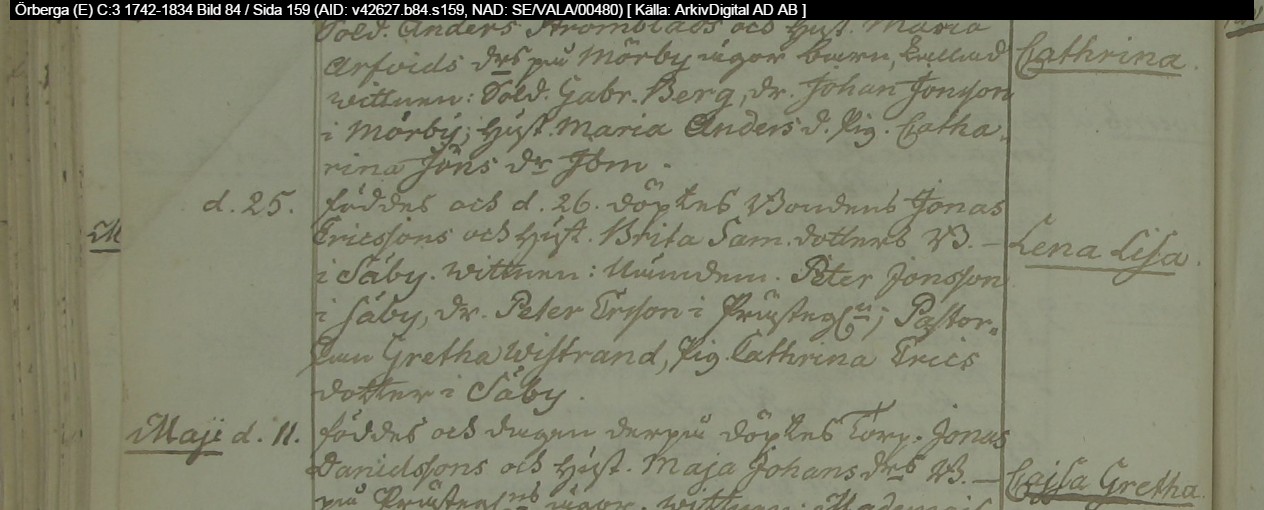 Örberga (E) C:3 1742-1834 Bild 84 / Sida 159 (AID: v42627.b84.s159, NAD: SE/VALA/00480) [ Källa: ArkivDigital AD AB ]
Sold. Anders Strömblads och Hust. Maria
Arfvids drs på Mörby ägor barn, kallad
Cathrina.
wittnen: Sold. Gabr. Berg, dr. Johan Jonsson
i Mörby; Hust. Maria Anders d. Pig. Catha-
rina Jöns dr Ibm.
d. 25. föddes och d. 26. döptes Bondens Jonas
M Ericssons och Hust. Brita Sam. dotters B. –
Lena Lisa.
i Säby. wittnen: Nämndem. Peter Jonsson
i Säby, dr. Peter Ersson i Prästeg; Pastor-
Gretha Wistrand, Pig. Cathrina Erics
dotter i Säby.
Maji d. 11. föddes och dagen derpå döptes Torp. Jonas
Danielssons och Hust. Maja Johans drs B. –
Cajsa Gretha.
på ägor. wittnen: